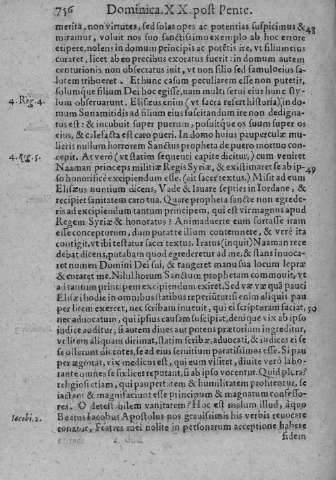 756 Dominica.XX.post Pente.
merita, non virtutes, sed solas opes ac potentias suspicimus & 48
miramur, voluit nos suo sanctissimo exemplo ab hoc errore
eripere, nolens in domum principis ac potētis ire, vt filium eius
curaret, licet ab eo precibus exoratus fuerit: in domum autem
centurionis non obsecratus iuit, vt non filio sed famulo eius sa-
lutem tribueret. Et hunc casum peculiarem esse non putetis,
solumque filium Dei hoc egisse, nam multi serui eius hunc sty-
4. Reg. 4. lum obseruarunt. Elisæus enim (vt sacra refert historia) in do-
mum Sunamitidis ad filium eius suscitandum ire non dedigna-
tus est: & incubuit super puerum, posuitque os suum super os
eius, & calefacta est caro pueri. In domo huius paupercule mu-
lieris nullum horrorem Sanctus propheta de puero mortuo con-
4. Reg. 5. cepit. At verò (vt statim sequenti capite dicitur,) cum veniret
Naaman princeps militiæ Regis Syriæ, & existimaret se ab ip- 49
so honorificè excipiendum esse. (ait sacer textus.) Misit ad eum
Elisæus nuntium dicens, Vade & lauare septies in Iordane, &
recipiet sanitatem caro tua. Quare propheta sancte non egrede-
ris ad excipiendum tantum principem, qui est vir magnus apud
Regem Syriæ & honoratus? Animaduerte eum fortasse iram
esse concepturum, dum putat te illum contemnere, & verè ita
contigit, vt ibi testatur sacer textus. Iratus (inquit) Naaman rece
debat dicens, putabam quod egrederetur ad me, & stans inuoca-
ret nomen Domini Dei sui, & tangeret manu sua locum lepræ
& curaret me. Nihil horum Sanctum prophetam commouit, vt
ad tantum principem excipiendum exiret. Sed væ væ quā pauci
Elisæi hodie in omnibus statibus reperiūtur: si enim aliquis pau
per litem exercet, nec scribam inuenit, qui ei scripturam faciat, 50
nec aduocatum, qui ipsius causam suscipiat, denique vix ab ipso
iudice auditur, si autem diues aut potens prætorium ingreditur,
vt litem aliquam dirimat, statim scribæ, aduocati, & iudices ei se
se offerunt dicentes, se ad eius seruitium paratissimos esse. Si pau
per ægrotat, vix medicus est, qui eum visitet, diuite verò labo-
rante omnes se sistere potant, si ab ipso vocentur. Quid plura?
religiosi etiam, qui paupertatem & humilitatem profitentur, se
iactant & magnifaciunt esse principum & magnatum confesso-
res. O detestabilem vanitatem? Hoc est malum illud, à quo
Iacobi. 2. Beatus Iacobus Apostolus nos grauissimis his verbis reuocare
conatur, Fratres mei nolite in personarum acceptione habere
fidem